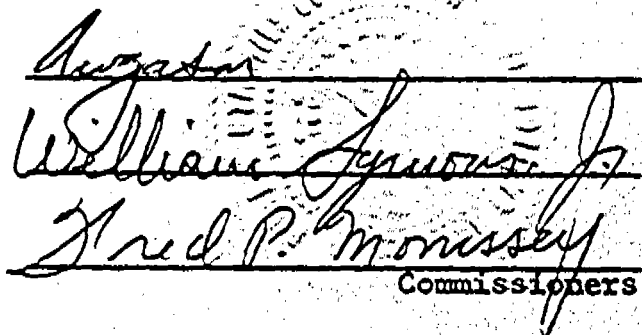 William Symons, Jr.
Fred P. Morrissey
Commissioners